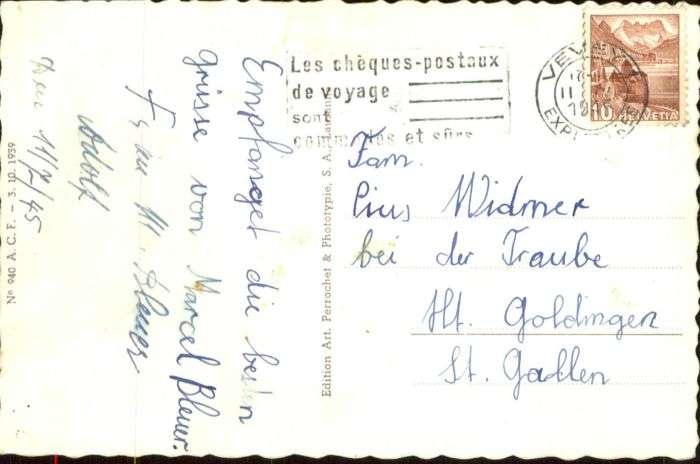 Empfanget die besten
grüsse von Marcel Bleuer.
Frau M. Bleuer
Adolf
Den 11/7/45
No 940 A. C. F. — 3. 10. 1939
Edition Art. Perrochet & Phototypie, S. A., Lausanne
Les chèques-postaux
de voyage
sont
commodes et sûrs
VEVEY 1
11
1945
EXP. LETTRES
10 HELVETIA
Fam.
Pius Widmer
bei der Traube
Ht. Goldingen
St. Gallen